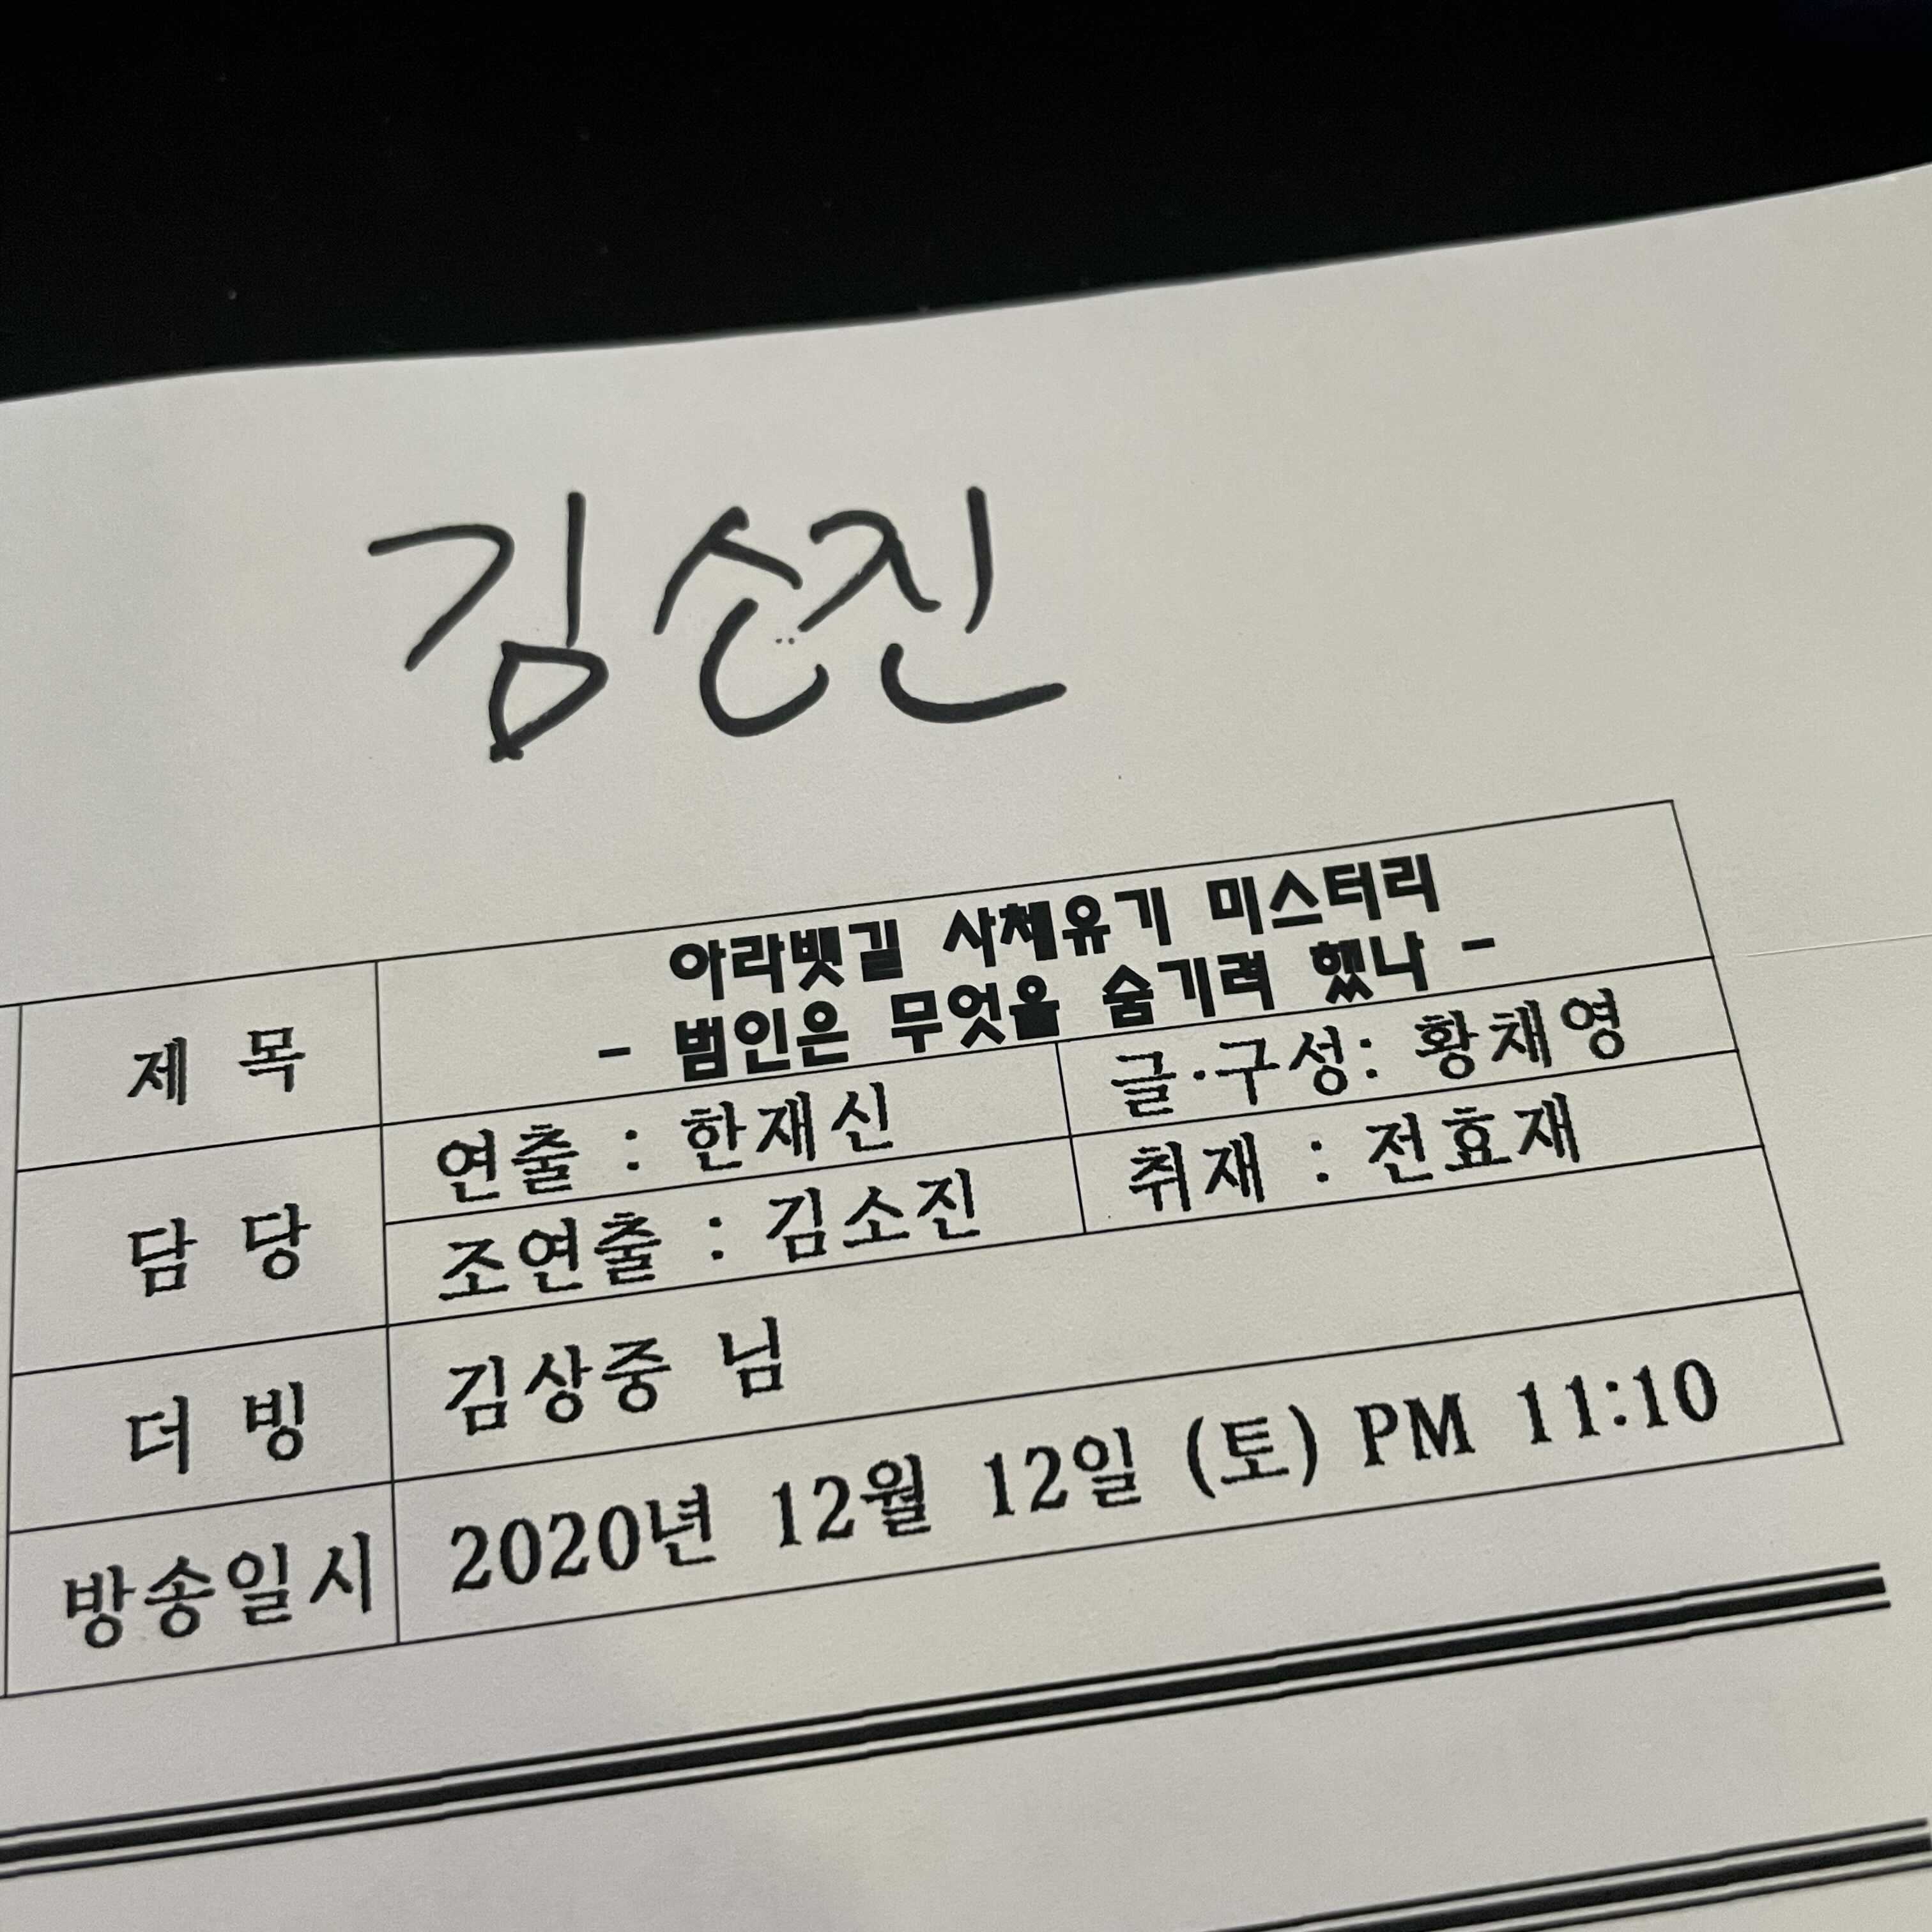 김소진
제 목
아라뱃길 사체유기 미스터리
- 범인은 무엇을 숨기려 했나 -
담 당
연출 : 한재신
글·구성: 황채영
조연출 : 김소진
취재 : 전효재
더 빙
김상중 님
방송일시
2020년 12월 12일 (토) PM 11:10